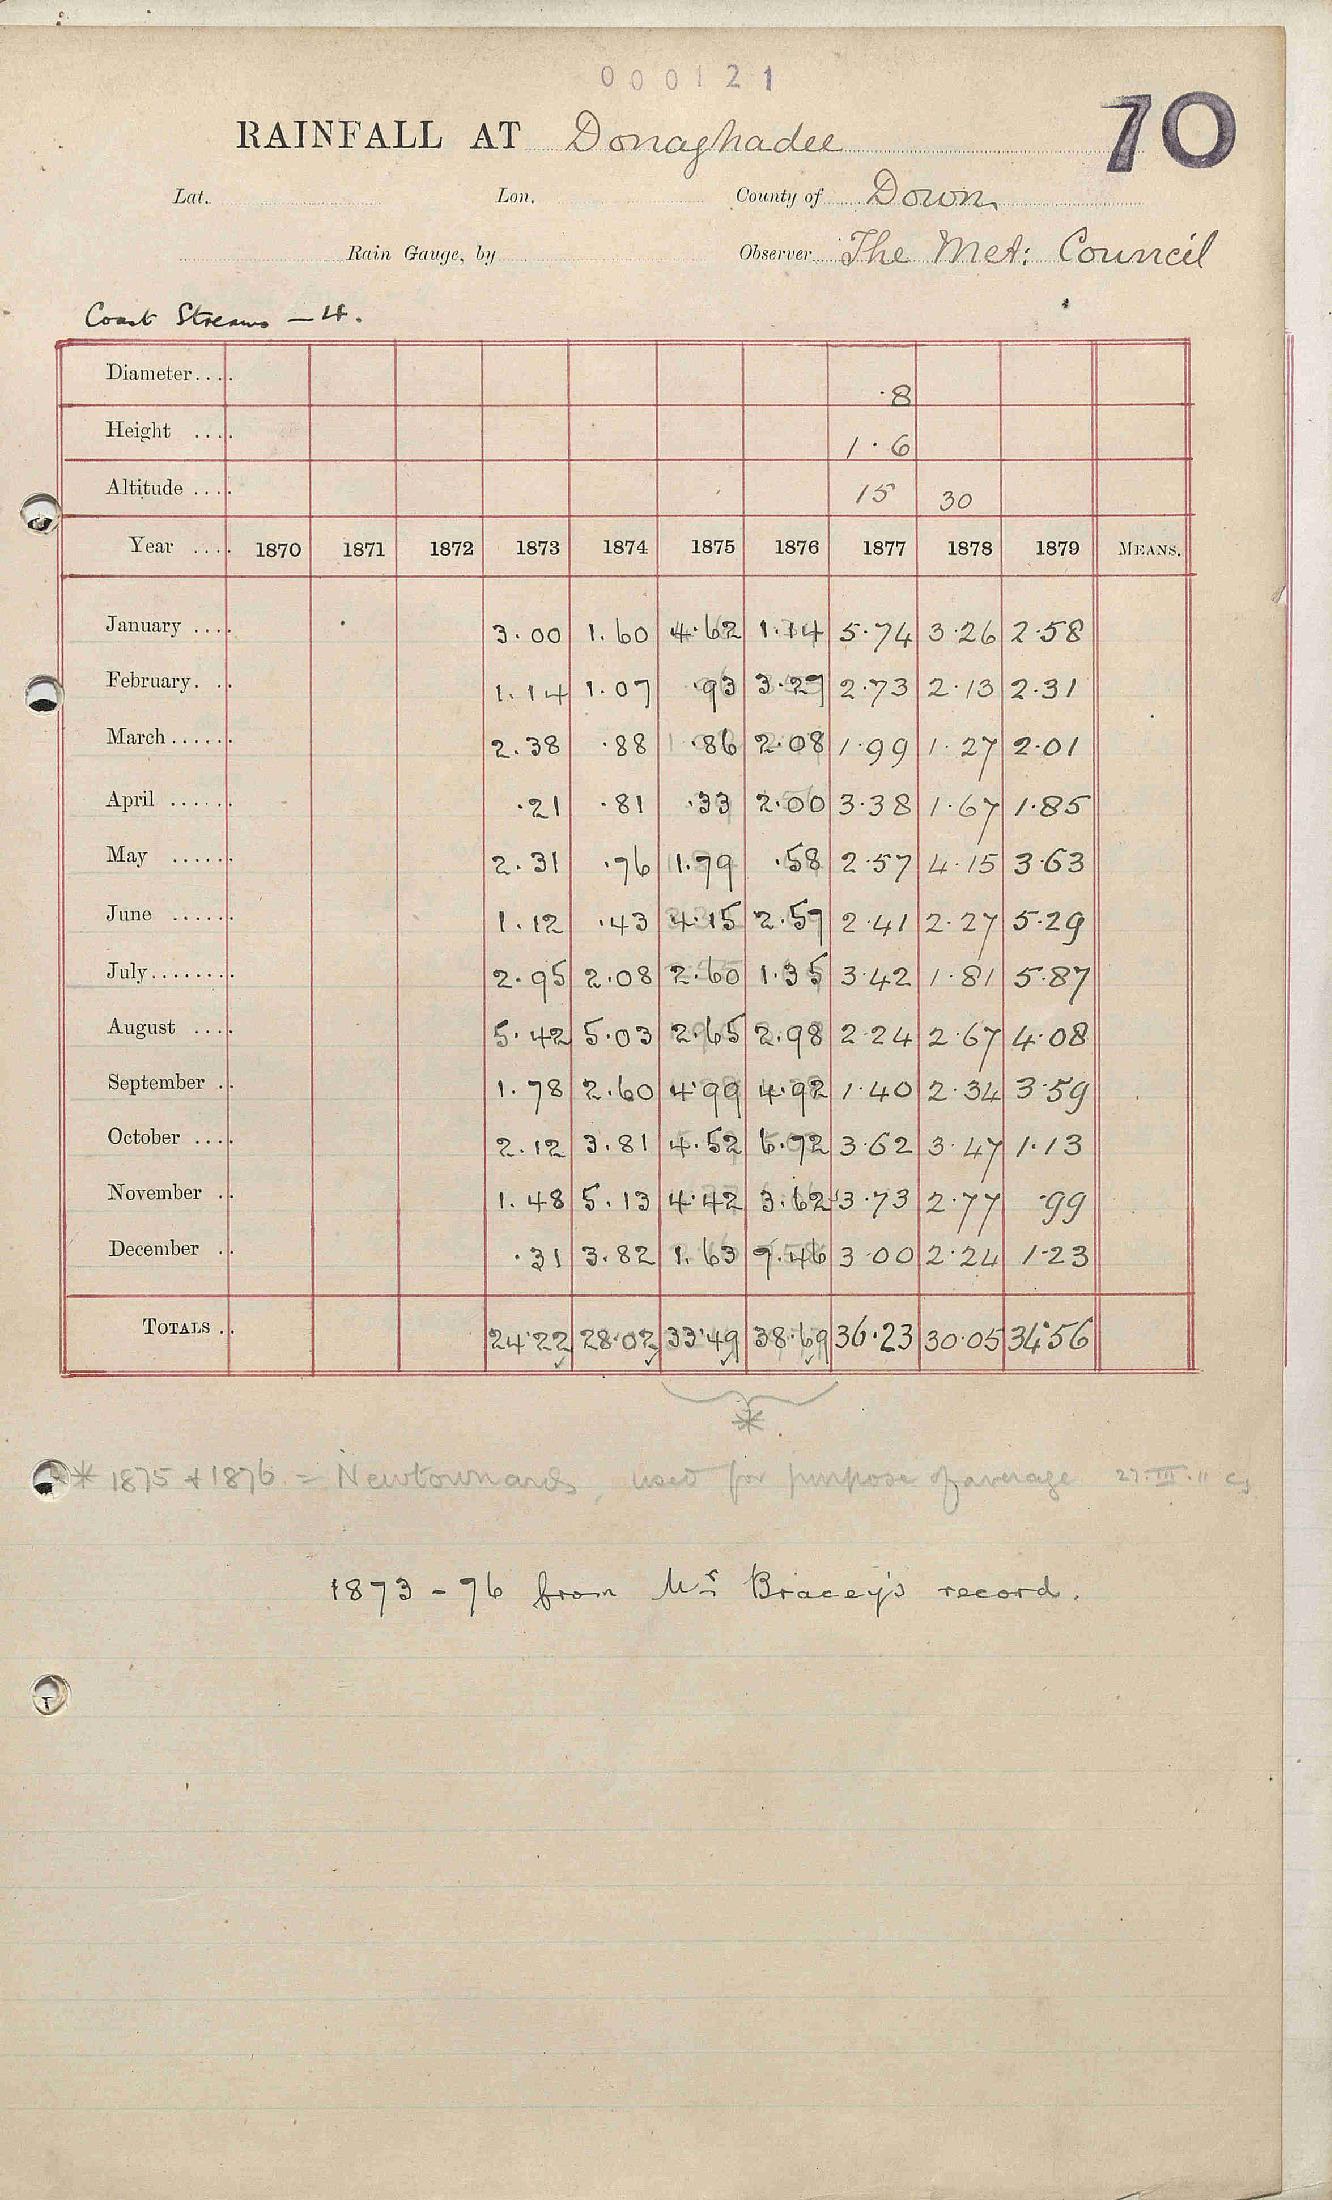 000121
70
RAINFALL AT Donaghadee
Lat. Lon. County of Down
Rain Gauge, by Observer The Met: Council
Coast Streams - 4.
Diameter.... ·8
Height .... 1·6
Altitude .... 15 30
Year .... 1870 1871 1872 1873 1874 1875 1876 1877 1878 1879 MEANS.
January .... 3.00 1.60 4.62 1.14 5.74 3.26 2.58
February. .. 1.14 1.07 .93 3.27 2.73 2.13 2.31
March...... 2.38 .88 .86 2.08 1.99 1.27 2.01
April ...... .21 .81 .33 2.00 3.38 1.67 1.85
May ...... 2.31 .76 1.79 .58 2.57 4.15 3.63
June ...... 1.12 .43 4.15 2.57 2.41 2.27 5.29
July........ 2.95 2.08 2.60 1.35 3.42 1.81 5.87
August .... 5.42 5.03 2.65 2.98 2.24 2.67 4.08
September .. 1.78 2.60 4.99 4.92 1.40 2.34 3.59
October .... 2.12 3.81 4.52 6.72 3.62 3.47 1.13
November .. 1.48 5.13 4.42 3.62 3.73 2.77 .99
December .. .31 3.82 1.63 7.46 3.00 2.24 1.23
TOTALS .. 24.22 28.02 33.49 38.69 36.23 30.05 34.56
*
* 1875 & 1876 = Newtownards, used for purpose of average 27.III.11
1873 - 76 from Mr Bracey's record.